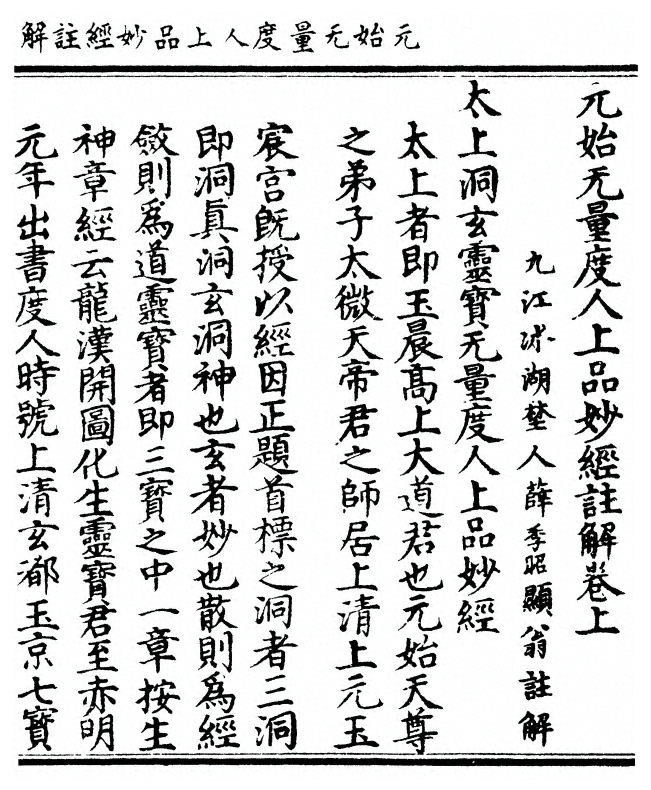 元始无量度人上品妙經註解
元始无量度人上品妙經註解卷上
九江浗湖埜人薛季昭顯翁註解
太上洞玄靈寶无量度人上品妙經
太上者即玉晨高上大道君也元始天尊
之弟子太微天帝君之師居上清上元玉
宸宮旣授以經因正題首標之洞者三洞
即洞眞洞玄洞神也玄者妙也散則爲經
斂則爲道靈寶者即三寶之中一章按生
神章經云龍漢開圖化生靈寶君至赤明
元年出書度人時號上清玄都玉京七寶